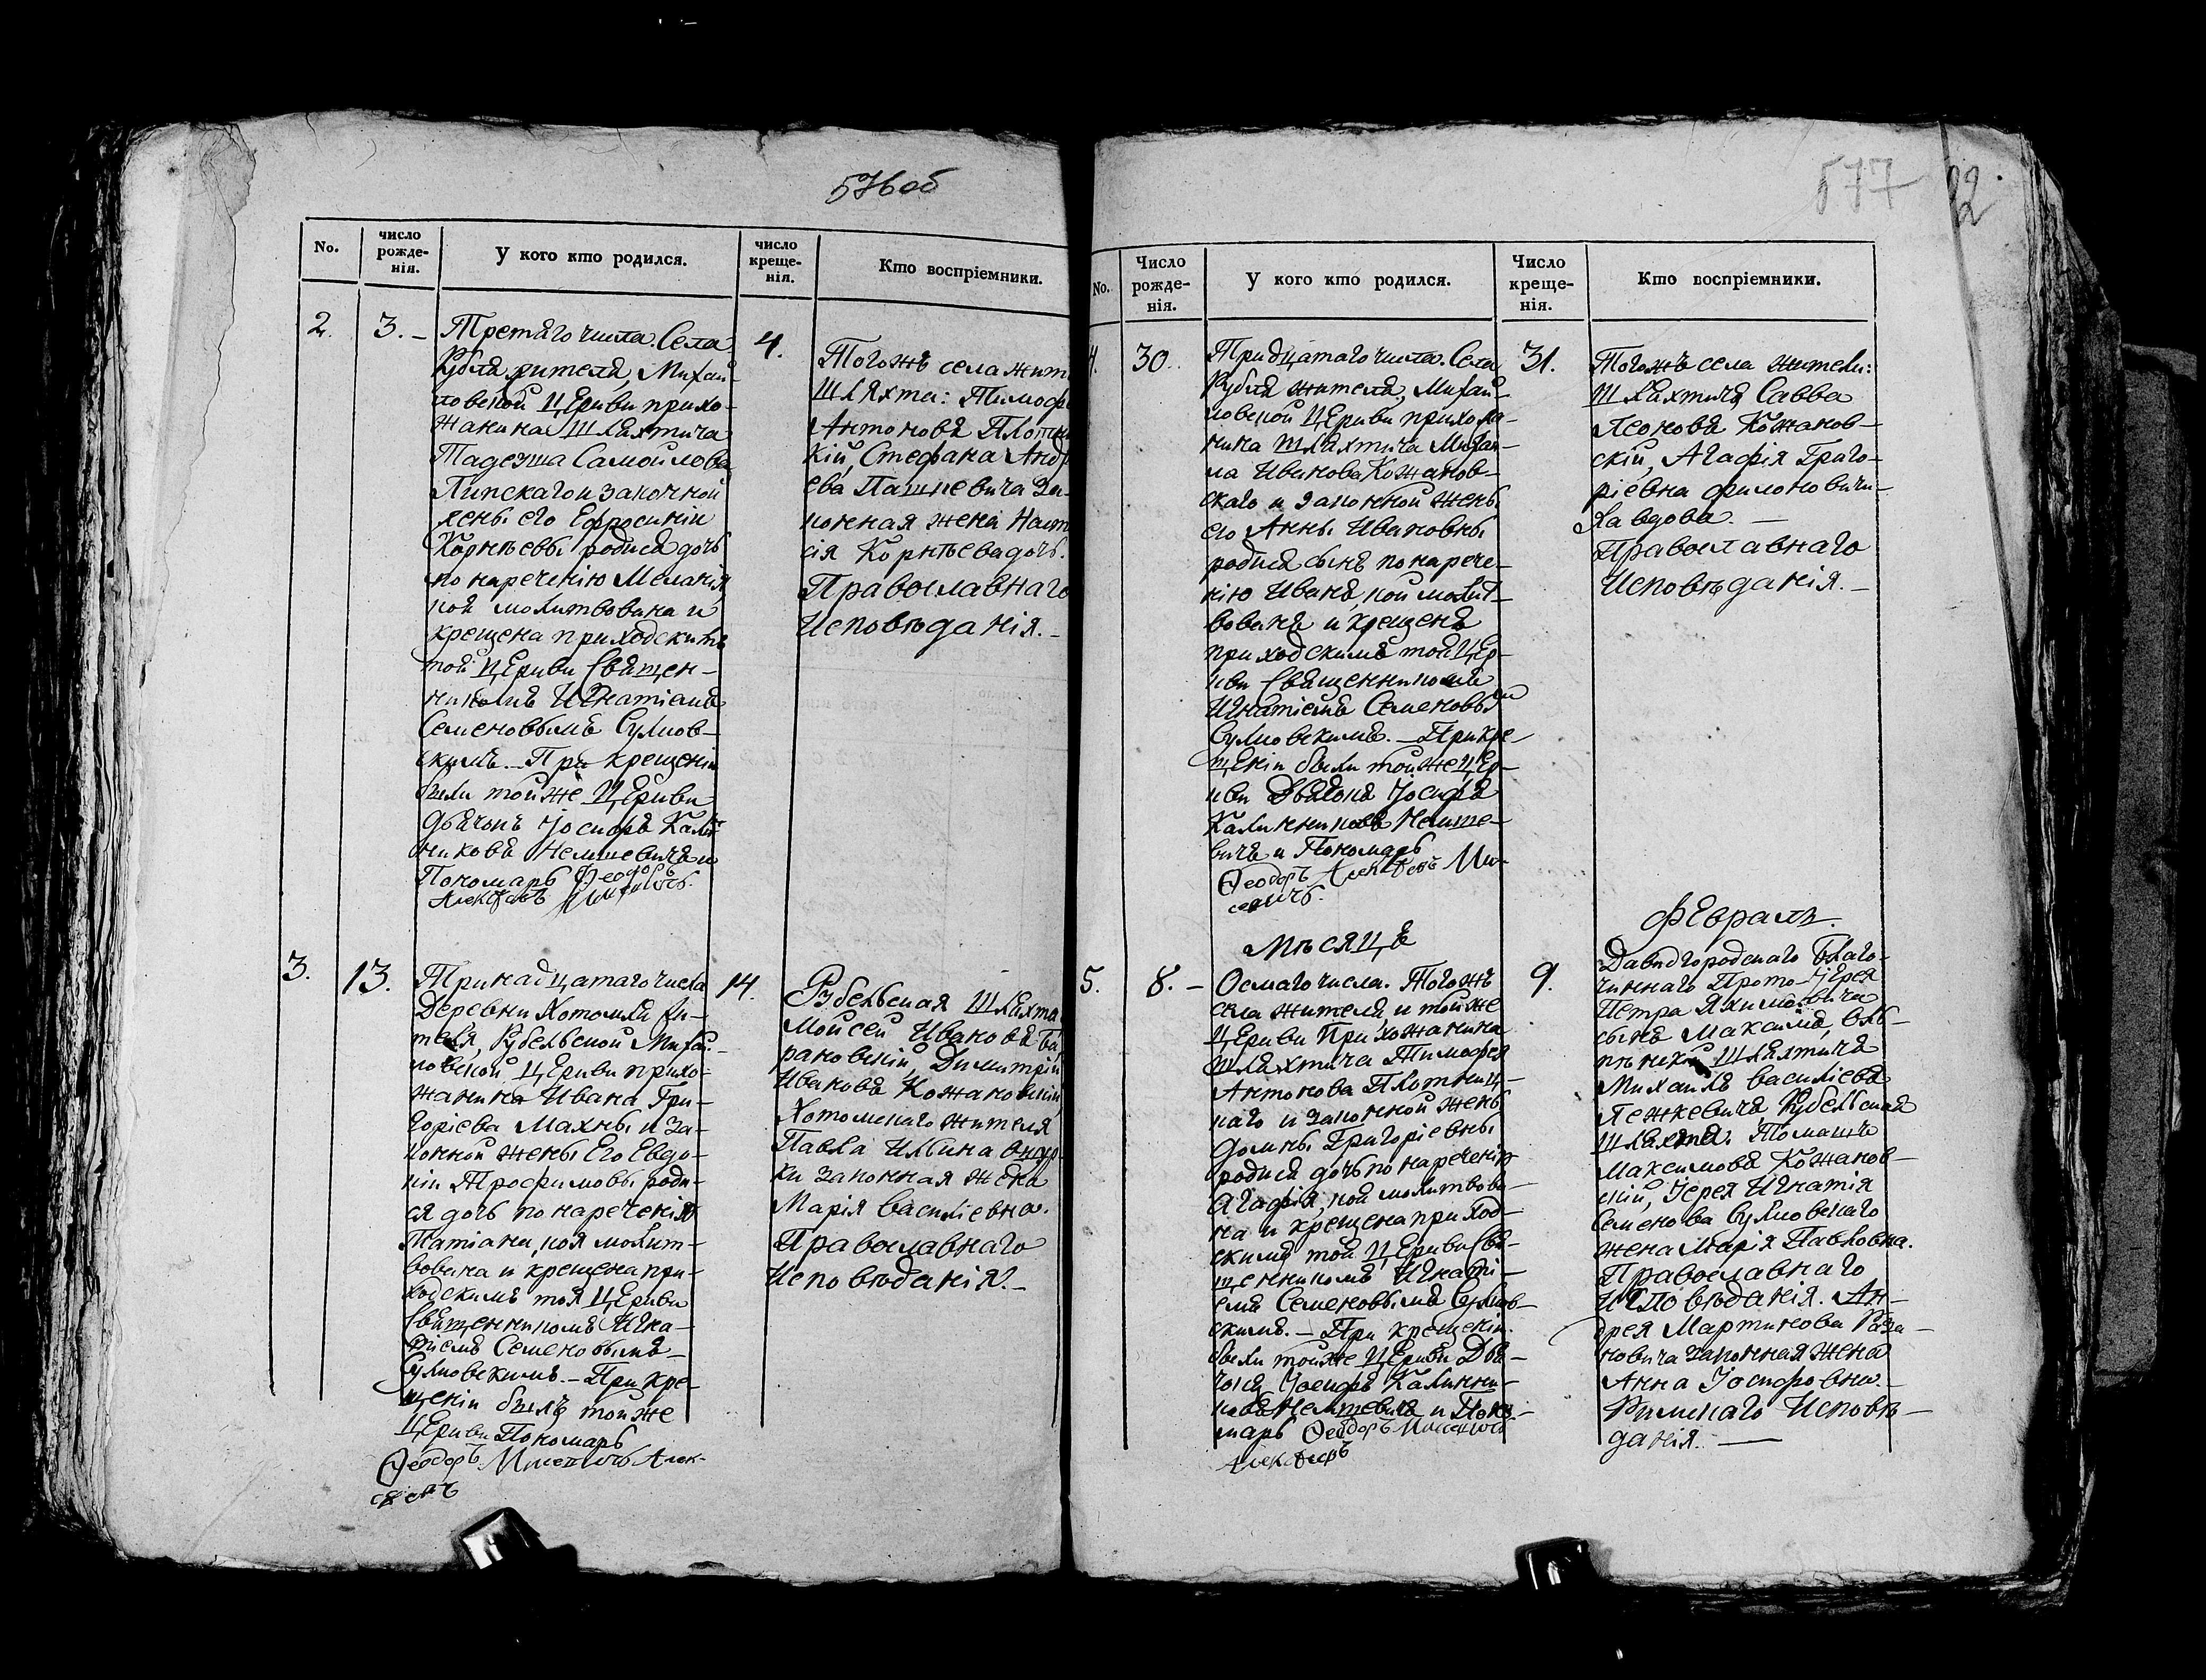 576об
No.
число рожде-нія.
У кого кто родился.
число креще-нія.
Кто воспріемники.
2.
3. –
Третяго числа. Села
Рубля жителя, Михай-
ловской Церкви прихо-
жанина Шляхтича
Тадеэша Самойлова
Липскаго и законной
жены его Ефросиніи
Корнѣевы родися дочь
по нареченію Меланія,
коя молитвована и
крещена приходскимъ
той Церкви Священ-
никомъ Игнатіемъ
Семеновымъ Сулков-
скимъ. – При крещеніи
были тойже Церкви
Дьячокъ Іосифъ Кали-
никовъ Немшевичъ и
Пономарь Феодоръ
4.
Тогожъ села жит
Шляхти: Тимоф
Антоновъ Плотни
кій, Стефана Андр
ева Пашкевича За-
конная жена Наст
сія Корнѣева дочь.
Православнаго
Исповѣданія. –
3.
13.
Тринадцатаго числа
Деревни Хотомля жи-
теля, Рубельской Михай-
ловской Церкви прихо-
жанина Ивана Гри-
горіева Махны и за-
конной жены Его Евдо-
кіи Трофимовы роди-
ся дочь по нареченію
Татіана, коя молит-
вована и крещена при-
ходскимъ тоя Церкви
Священникомъ Игна-
тіемъ Семеновымъ
Сулковскимъ. – При кре-
щеніи былъ тойже
Церкви Пономарь
Феодоръ
14.
Рубельская Шляхта
Мойсей Ивановъ Ба
рановскій, Димитрій
Ивановъ Кожановскій,
Хотомскаго жителя
Павла Ильина
законная жена
Марія Василіевна.
Православнаго
Исповѣданія. –
577
22.
No.
Число рожде-нія.
У кого кто родился.
Число креще-нія.
Кто воспріемники.
4.
30.
Тридцатаго числа. Села
Рубля жителя, Михай-
ловской Церкви прихожа-
нина шляхтича Михай-
ла Иванова Кожанов-
скаго и законной жены
его Анны Ивановны
родися сынъ по нарече-
нію Иванъ, кой молит-
вованъ и крещенъ
приходскимъ той Цер-
кви Священникомъ
Игнатіемъ Семеновым
Сулковскимъ. – При кре-
щеніи были тойже Цер-
кви Дьячокъ Іосифъ
Калинниковъ Немше-
вичъ и Пономарь
Феодоръ
31.
Тогожъ села жители:
Шляхтичъ Савва
Леоновъ Кожанов-
скій, Агафія Григо-
ріевна Филоновичи-
ха вдова. –
Православнаго
Исповѣданія. –
Мѣсяцъ
Февраль.
5.
8. –
Осмаго числа. Тогожъ
села жителя, и тойже
Церкви Прихожанина
шляхтича Тимофея
Антонова Плотниц-
каго и законной жены
Домны Григоріевны
родися дочь по нареченію
Агафія, коя молитвова-
на и крещена приход-
скимъ той Церкви Свя-
щенникомъ Игнаті-
емъ Семеновымъ Сулков-
скимъ. – При крещеніи
были тойже Церкви Дья-
чокъ Іосифъ Калинни-
ковъ Немшевичъ и Поно-
марь Феодоръ
9.
Давидгородскаго Благо-
чиннаго Прото-Іерея
Петра Якимовича
сынъ Максимъ,
Шляхтичъ
Михаилъ Василіевъ
Лежкевичъ, Рубельская
шляхта. Томашъ
Максимовъ Кожанов-
скій, Іерея Игнатія
Семенова Сулковскаго
жена Марія Павловна.
Православнаго
Исповѣданія. Ан-
дрея Мартинова
законная жена
Анна Іосифовна. –
Римскаго Исповѣ-
данія. –